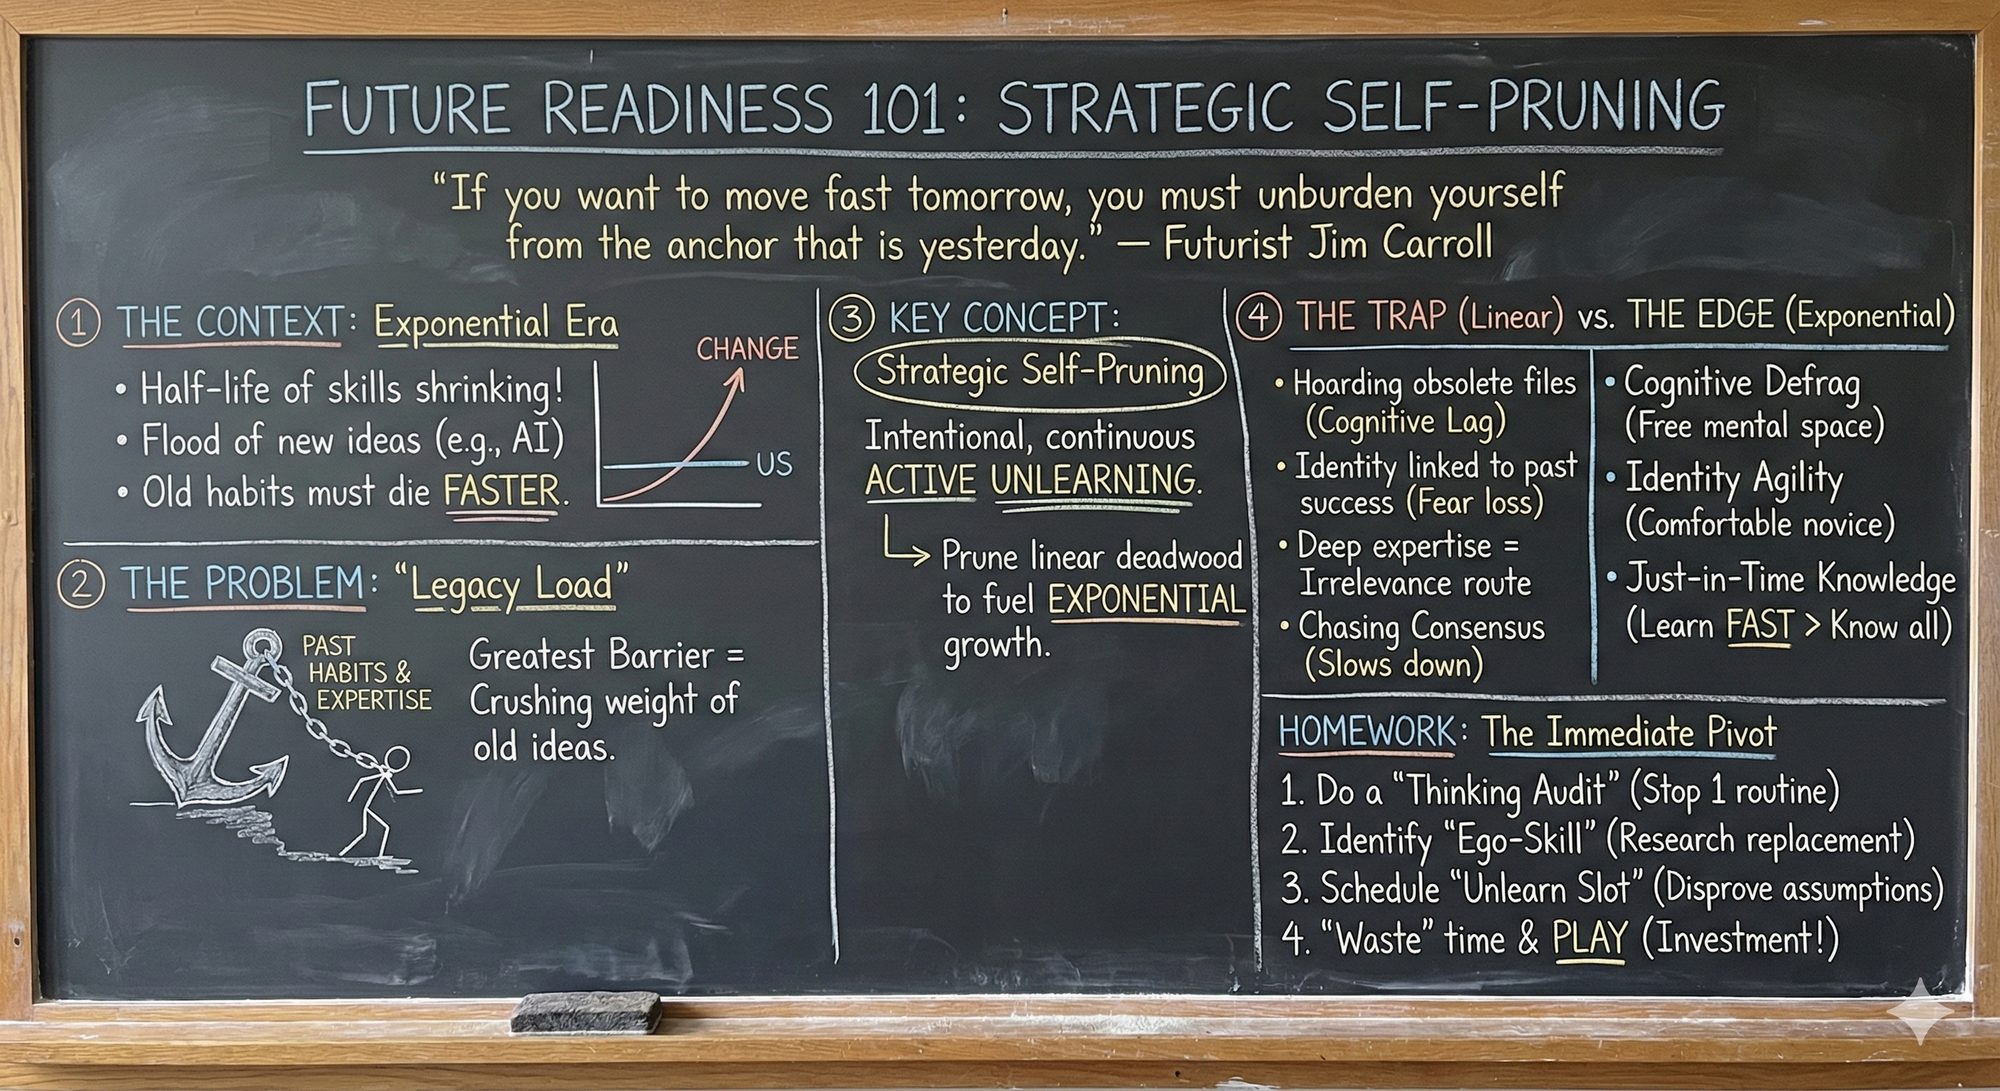 FUTURE READINESS 101: STRATEGIC SELF-PRUNING
“If you want to move fast tomorrow, you must unburden yourself
from the anchor that is yesterday.” — Futurist Jim Carroll
1 THE CONTEXT: Exponential Era
• Half-life of skills shrinking!
• Flood of new ideas (e.g., AI)
• Old habits must die FASTER.
CHANGE
US
2 THE PROBLEM: “Legacy Load”
PAST
HABITS &
EXPERTISE
Greatest Barrier =
Crushing weight of
old ideas.
3 KEY CONCEPT:
Strategic Self-Pruning
Intentional, continuous
ACTIVE UNLEARNING.
Prune linear deadwood
to fuel EXPONENTIAL
growth.
4 THE TRAP (Linear) vs. THE EDGE (Exponential)
• Hoarding obsolete files
(Cognitive Lag)
• Identity linked to past
success (Fear loss)
• Deep expertise =
Irrelevance route
• Chasing Consensus
(Slows down)
• Cognitive Defrag
(Free mental space)
• Identity Agility
(Comfortable novice)
• Just-in-Time Knowledge
(Learn FAST > Know all)
HOMEWORK: The Immediate Pivot
1. Do a “Thinking Audit” (Stop 1 routine)
2. Identify “Ego-Skill” (Research replacement)
3. Schedule “Unlearn Slot” (Disprove assumptions)
4. “Waste” time & PLAY (Investment!)